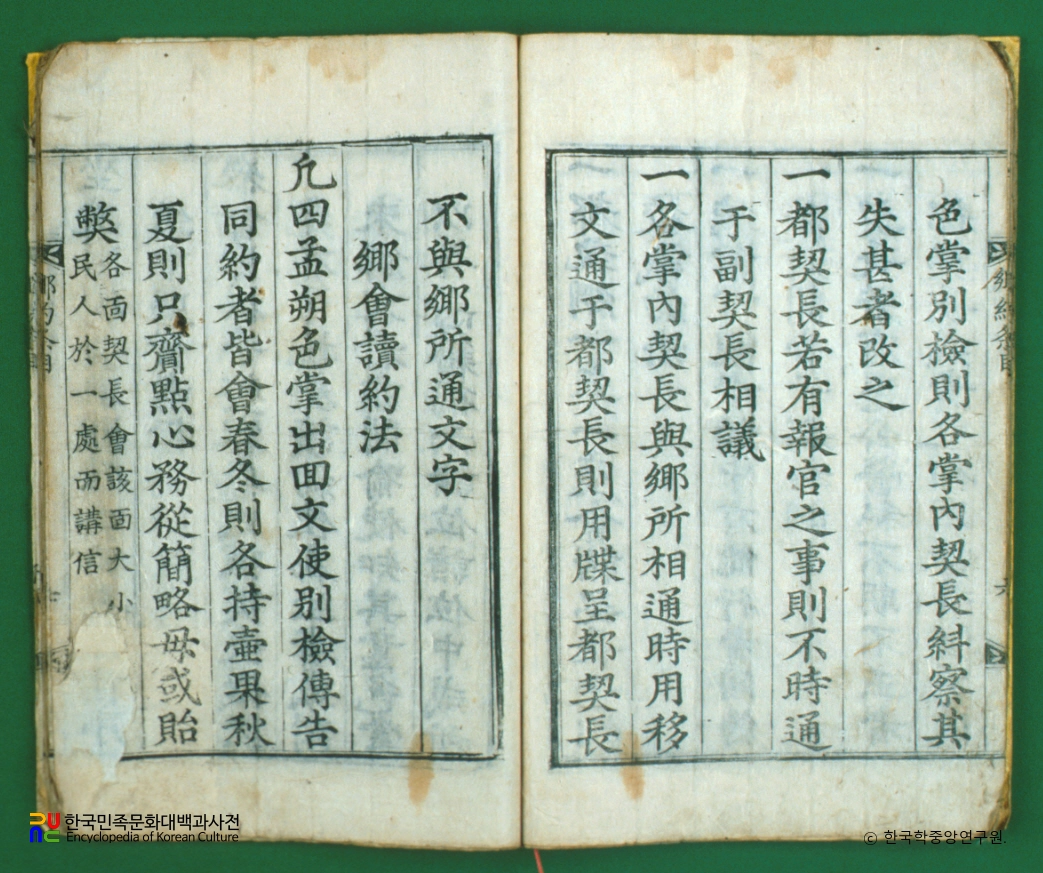 色掌別檢則各掌內契長糾察其
失甚者改之
一都契長若有報官之事則不時通
于副契長相議
一各掌內契長與鄉所相通時用移
文通于都契長則用牒呈都契長
不與鄉所通文字
鄉會讀約法
凢四孟朔色掌出回文使別檢傳告
同約者皆會春冬則各持壷果秋
夏則只齎點心務從簡略毋或貽
弊各面契長會該面大小
民人於一處而講信
鄉約條目
六
한국민족문화대백과사전
Encyclopedia of Korean Culture
ⓒ 한국학중앙연구원.